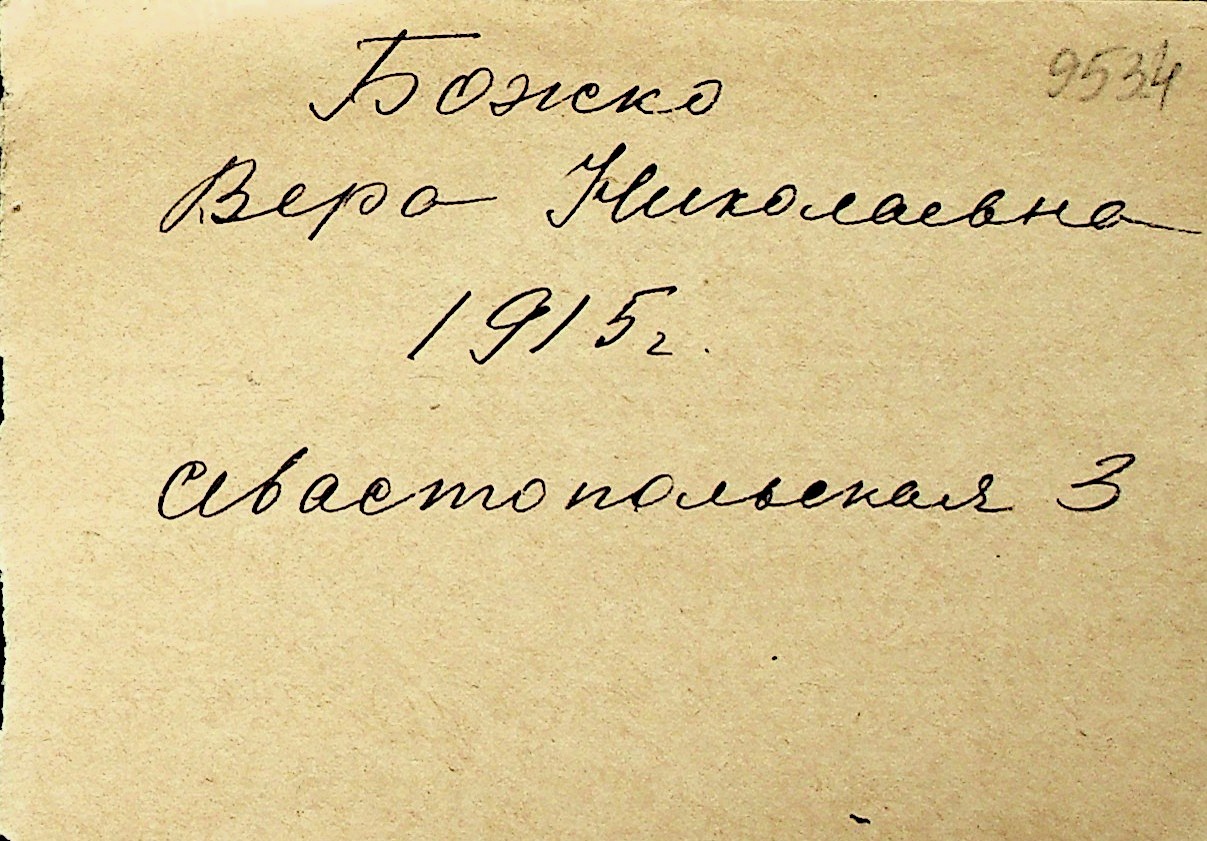 9534
Божко
Вера Николаевна
1915г.
Севастопольская 3